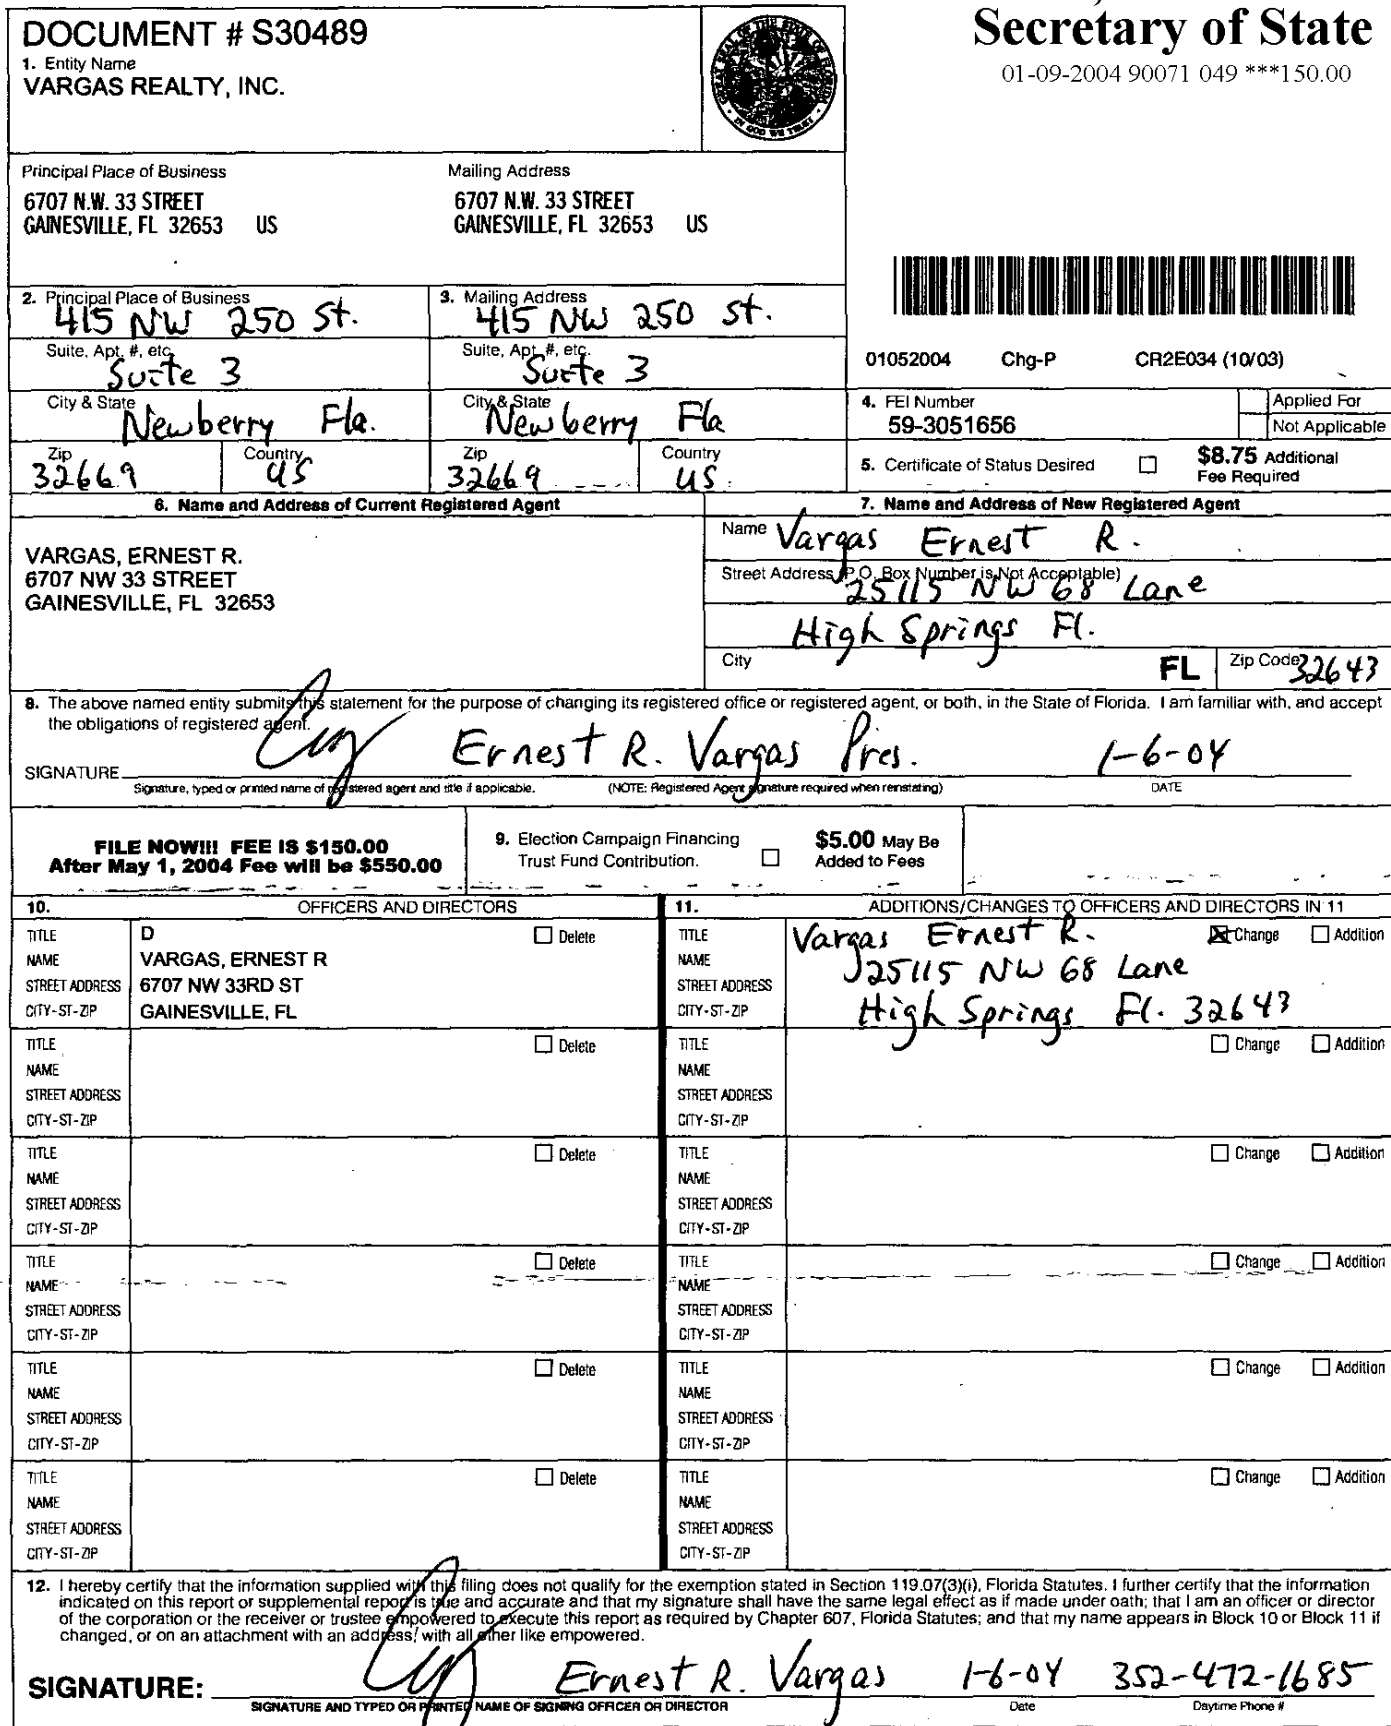 DOCUMENT # S30489
1. Entity Name
VARGAS REALTY, INC.
Secretary of State
01-09-2004 90071 049 ***150.00
Principal Place of Business
6707 N.W. 33 STREET
GAINESVILLE, FL 32653 US
Mailing Address
6707 N.W. 33 STREET
GAINESVILLE, FL 32653 US
2. Principal Place of Business
415 NW 250 St.
Suite, Apt. #, etc.
Suite 3
City & State
Newberry Fla.
Zip
32669
Country
US
3. Mailing Address
415 NW 250 St.
Suite, Apt. #, etc.
Suite 3
City & State
Newberry Fla
Zip
32669
Country
US
01052004 Chg-P CR2E034 (10/03)
4. FEI Number
59-3051656
Applied For
Not Applicable
5. Certificate of Status Desired
$8.75 Additional
Fee Required
6. Name and Address of Current Registered Agent
VARGAS, ERNEST R.
6707 NW 33 STREET
GAINESVILLE, FL 32653
7. Name and Address of New Registered Agent
Name Vargas Ernest R.
Street Address (P.O. Box Number is Not Acceptable)
25115 NW 68 Lane
High Springs Fl.
City FL Zip Code 32643
8. The above named entity submits this statement for the purpose of changing its registered office or registered agent, or both, in the State of Florida. I am familiar with, and accept
the obligations of registered agent.
SIGNATURE Ernest R. Vargas Pres. 1-6-04
Signature, typed or printed name of registered agent and title if applicable. (NOTE: Registered Agent signature required when reinstating) DATE
FILE NOW!!! FEE IS $150.00
After May 1, 2004 Fee will be $550.00
9. Election Campaign Financing
Trust Fund Contribution.
$5.00 May Be
Added to Fees
10. OFFICERS AND DIRECTORS
TITLE D Delete
NAME VARGAS, ERNEST R
STREET ADDRESS 6707 NW 33RD ST
CITY-ST-ZIP GAINESVILLE, FL
TITLE Delete
NAME
STREET ADDRESS
CITY-ST-ZIP
TITLE Delete
NAME
STREET ADDRESS
CITY-ST-ZIP
TITLE Delete
NAME
STREET ADDRESS
CITY-ST-ZIP
TITLE Delete
NAME
STREET ADDRESS
CITY-ST-ZIP
TITLE Delete
NAME
STREET ADDRESS
CITY-ST-ZIP
11. ADDITIONS/CHANGES TO OFFICERS AND DIRECTORS IN 11
TITLE Vargas Ernest R. Change Addition
NAME
25115 NW 68 Lane
STREET ADDRESS
CITY-ST-ZIP High Springs Fl. 32643
TITLE Change Addition
NAME
STREET ADDRESS
CITY-ST-ZIP
TITLE Change Addition
NAME
STREET ADDRESS
CITY-ST-ZIP
TITLE Change Addition
NAME
STREET ADDRESS
CITY-ST-ZIP
TITLE Change Addition
NAME
STREET ADDRESS
CITY-ST-ZIP
TITLE Change Addition
NAME
STREET ADDRESS
CITY-ST-ZIP
12. I hereby certify that the information supplied with this filing does not qualify for the exemption stated in Section 119.07(3)(i), Florida Statutes. I further certify that the information
indicated on this report or supplemental report is true and accurate and that my signature shall have the same legal effect as if made under oath; that I am an officer or director
of the corporation or the receiver or trustee empowered to execute this report as required by Chapter 607, Florida Statutes; and that my name appears in Block 10 or Block 11 if
changed, or on an attachment with an address, with all other like empowered.
SIGNATURE: Ernest R. Vargas 1-6-04 352-472-1685
SIGNATURE AND TYPED OR PRINTED NAME OF SIGNING OFFICER OR DIRECTOR Date Daytime Phone #